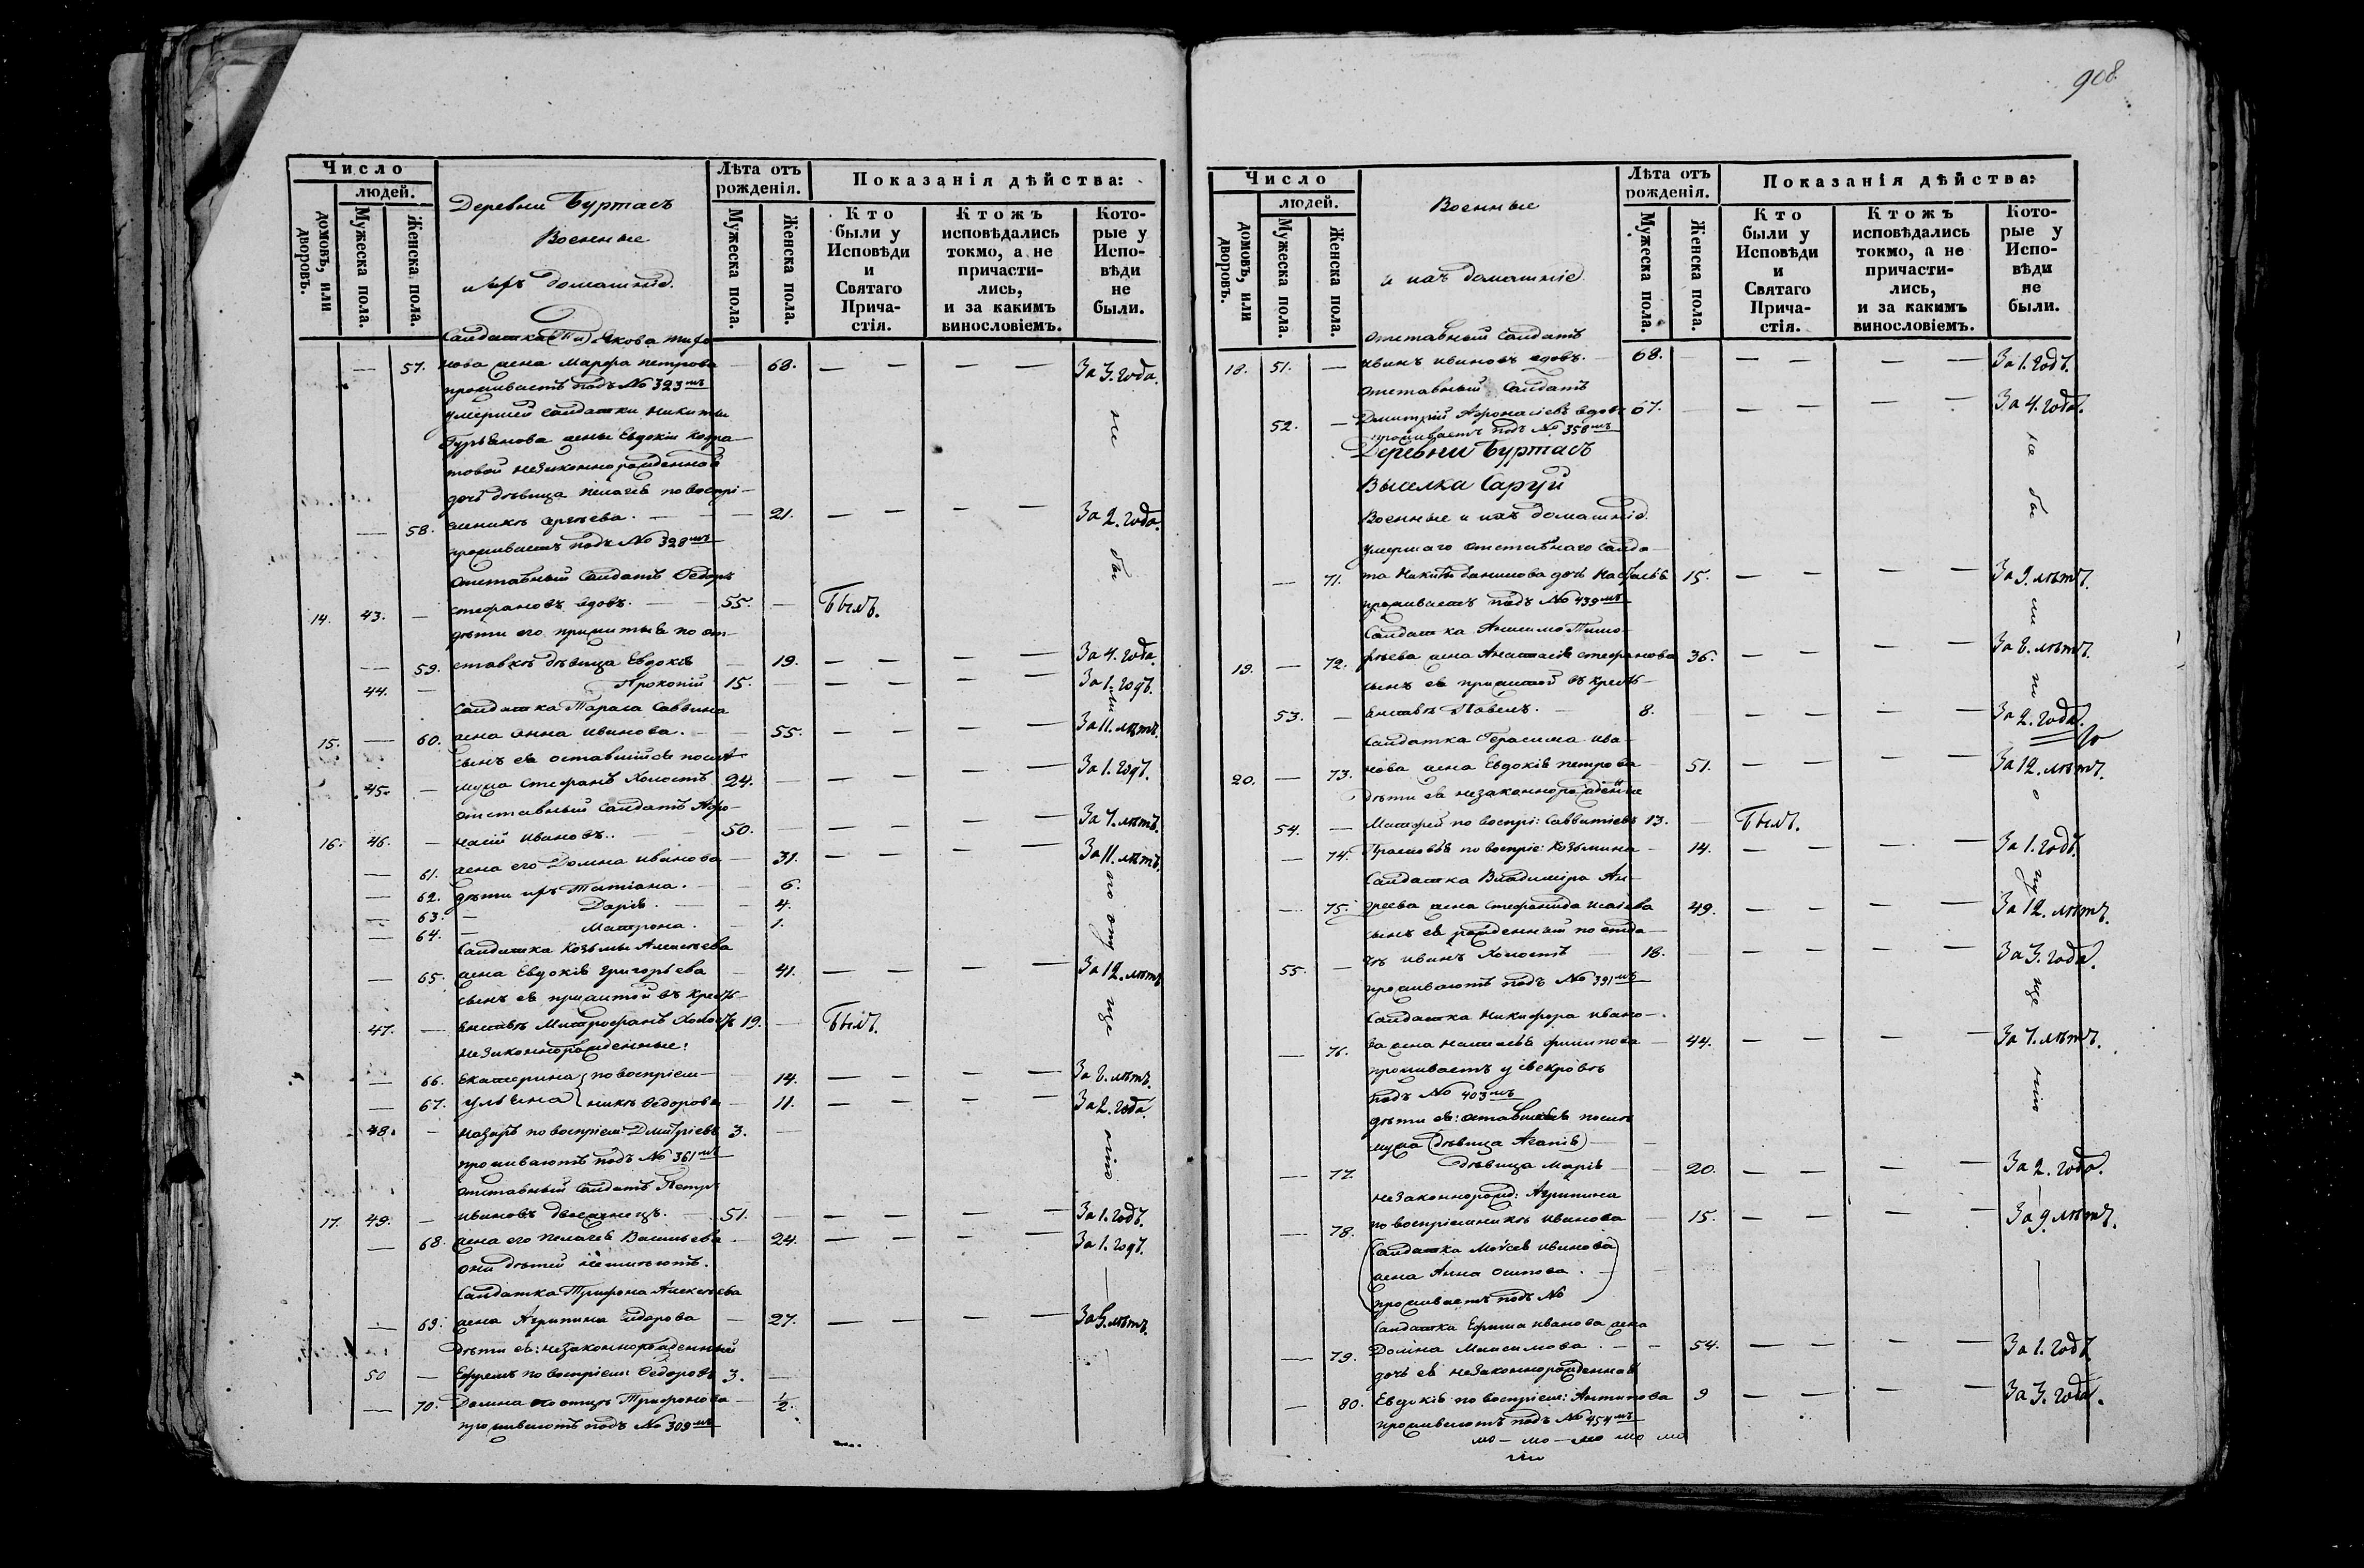 908.
Число
людей.
домовъ, или дворовъ.
Мужеска пола.
Женска пола.
Деревни Буртасъ
Военные
и ихъ домашніе.
Лѣта отъ рожденія.
Мужеска пола.
Женска пола.
Показанія дѣйства:
Кто были у Исповѣди и Святаго Прича-стія.
Ктожъ исповѣдались токмо, а не причасти-лись, и за какимъ винословіемъ.
Кото-рые у Испо-вѣди не были.
Салдатка Якова
— 57. нова жена Марѳа Петрова — 68. — — — — За 3. года.
проживаетъ подъ № 323мъ
умершей салдатки Никиты
Гурьянова жены Евдокіи
товой незаконнорожденная
дочь дѣвица Пелагея по воспрі-
— 58. емникѣ Сергѣева. — — 21. — — — — За 2. года.
проживаетъ подъ № 328мъ
Отставный Салдатъ Ѳедоръ
14. 43. — Стефановъ вдовъ. — 55. — Былъ.
дѣти его прижитыя по от-
— 59. ставкѣ дѣвица Евдокія — 19. — — — — За 4. года.
44. — Прокопій 15. — — — — — За 1. годъ.
Салдатка Тараса Саввина
15. — 60. жена Анна Иванова. — 55. — — — — За 11. лѣтъ.
сынъ ея оставшійся послѣ
45. — мужа Стефанъ Холостъ 24. — — — — — За 1. годъ.
отставный Салдатъ Аѳа-
16. 46. — насій Ивановъ. — 50. — — — — — За 7. лѣтъ.
— 61. жена его Домна Иванова — 31. — — — — За 11. лѣтъ.
— 62. дѣти ихъ Татіана. — — 6.
— 63. — Дарія. — — 4.
— 64. — Матрона. — 1.
Салдатка Козьмы Алексѣева
— 65. жена Евдокія Григорьева — 41. — — — — За 12. лѣтъ.
сынъ ея прижитой въ кресть-
47. — янствѣ Митрофанъ Холостъ 19. — Былъ.
Незаконнорожденные:
— 66. Екатерина } по воспріем- — 14. — — — — За 8. лѣтъ.
— 67. Ульяна } никѣ Ѳедорова — 11. — — — — За 2. года.
48. — Назаръ по воспріем: Дмитріевъ 3. —
проживаютъ подъ № 361мъ
Отставный Салдатъ Петръ
17. 49. — Ивановъ двоеженецъ. — 51. — — — — — За 1. годъ.
— 68. жена его Пелагея Васильева — 24. — — — — За 1. годъ.
они дѣтей неимѣютъ.
Салдатка Трифона Алексѣева
— 69. жена Агрипина Сидорова — 27. — — — — За 5. лѣтъ.
дѣти ея: незаконнорожденный
50 — Ефремъ по воспріем: Ѳедоровъ 3. —
— 70. Домна по отцѣ Трифонова — ½.
проживаютъ подъ № 309мъ
не бы ли по опу ще нію
Число
людей.
домовъ, или дворовъ.
Мужеска пола.
Женска пола.
Военные
и ихъ домашніе.
Лѣта отъ рожденія.
Мужеска пола.
Женска пола.
Показанія дѣйства:
Кто были у Исповѣди и Святаго Прича-стія.
Ктожъ исповѣдались токмо, а не причасти-лись, и за какимъ винословіемъ.
Кото-рые у Испо-вѣди не были.
Отставный Салдатъ
18. 51. — Иванъ Ивановъ вдовъ. — 68. — — — — — За 1. годъ.
Отставный Салдатъ
52. — Димитрій Аѳонасіевъ вдовъ 67. — — — — — За 4. года.
проживаетъ подъ № 358мъ
Деревни Буртасъ
Выселка Саруй
Военные и ихъ домашніе.
умершаго отставнаго салда-
— 71. та Никиты Данилова дочь Наталья 15. — — — — За 9. лѣтъ.
проживаетъ подъ № 439мъ
Салдатка Анисима Тимо-
19. — 72. фѣева жена Анастасія Стефанова 36. — — — — За 8. лѣтъ.
сынъ ея прижитой въ кресть-
53. — янствѣ Павелъ. — 8. — — — — — За 2. года.
Салдатка Герасима Ива-
20. — 73. нова жена Евдокія Петрова 51. — — — — За 12. лѣтъ.
дѣти ея незаконнорожденные
54. — Матѳей по воспрі: Савватіевъ 13. — Былъ.
— 74. Прасковья по воспріе: Козьмина — 14. — — — — За 1. годъ.
Салдатка Владиміра Ан-
— 75. дреева жена Стефанида Исаіева 49. — — — — За 12. лѣтъ.
сынъ ея рожденный по отда-
55. — чѣ Иванъ Холостъ — 18. — — — — — За 3. года.
проживаютъ подъ № 391мъ
Салдатка Никифора Ивано-
— 76. ва жена Наталья Филипова — 44. — — — — За 7. лѣтъ.
проживаетъ у свекрови
подъ № 403мъ
дѣти ея: оставшіяся послѣ
мужа (дѣвица Агапія)
— 77. дѣвица Марія — — 20. — — — — За 2. года.
Незаконнорожд: Агрипина
— 78. по воспріемникѣ Иванова — 15. — — — — За 9 лѣтъ.
(Салдатка Моѵсея Иванова
жена Анна Осипова. —
проживаетъ подъ №)
Салдатка Ефима Иванова жена
— 79. Домна Максимова. — — 54. — — — — За 1. годъ.
дочь ея незаконнорожденная
— 80. Евдокія по воспріем: Антипова 9 — — — — За 3. года.
проживаютъ подъ № 454мъ
не бы ли по о пу ще нію